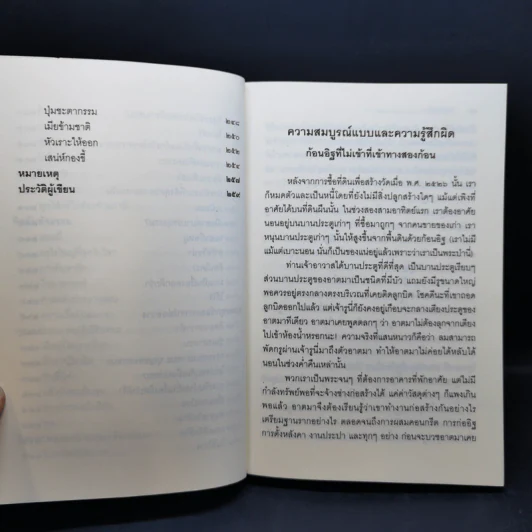 ปุ่มชะตากรรม ๒๔๘
เมียข้ามชาติ ๒๕๐
หัวเราะให้ออก ๒๕๒
เสน่ห์กองขี้ ๒๕๔
หมายเหตุ ๒๕๗
ประวัติผู้เขียน ๒๕๙
ความสมบูรณ์แบบและความรู้สึกผิด
ก้อนอิฐที่ไม่เข้าที่เข้าทางสองก้อน
หลังจากการซื้อที่ดินเพื่อสร้างวัดเมื่อ พ.ศ. ๒๕๒๖ นั้น เรา
ก็หมดตัวและเป็นหนี้โดยที่ยังไม่มีสิ่งปลูกสร้างใดๆ แม้แต่เพิงที่
อาศัยได้บนที่ดินผืนนั้น ในช่วงสองสามอาทิตย์แรก เราต้องอาศัย
นอนอยู่บนบานประตูเก่าๆ ที่ซื้อมาถูกๆ จากคนขายของเก่า เรา
หนุนบานประตูเก่าๆ นั้นให้สูงขึ้นจากพื้นดินด้วยก้อนอิฐ (เราไม่มี
แม้แต่เบาะนอน นั่นก็เป็นของแน่อยู่แล้วเพราะว่าเราเป็นพระป่านี่)
ท่านเจ้าอาวาสได้บานประตูที่ดีที่สุด เป็นบานประตูเรียบๆ
ส่วนบานประตูของอาตมาเป็นชนิดที่มีบัว แถมยังมีรูขนาดใหญ่
พอควรอยู่ตรงกลางตรงบริเวณที่เคยติดลูกบิด โชคดีนะที่เขาถอด
ลูกบิดออกไปแล้ว แต่เจ้ารูนี่ก็ยังคงอยู่เกือบจะกลางเตียงประตูของ
อาตมาทีเดียว อาตมาเคยพูดตลกๆ ว่า อาตมาไม่ต้องลุกจากเตียง
ไปเข้าห้องน้ำหรอกนะ! ความจริงที่แสนหนาวก็คือว่า ลมสามารถ
พัดกรูผ่านเจ้ารูนี่มาถึงตัวอาตมา ทำให้อาตมาไม่ค่อยได้หลับได้
นอนในช่วงค่ำคืนเหล่านั้น
พวกเราเป็นพระจนๆ ที่ต้องการอาคารที่พักอาศัย แต่ไม่มี
กำลังทรัพย์พอที่จะจ้างช่างก่อสร้างได้ แค่ค่าวัสดุต่างๆ ก็แพงเกิน
พอแล้ว อาตมาจึงต้องเรียนรู้ว่าเขาทำงานก่อสร้างกันอย่างไร
เตรียมฐานรากอย่างไร ตลอดจนถึงการผสมคอนกรีต การก่ออิฐ
การตั้งหลังคา งานประปา และทุกๆ อย่าง ก่อนจะบวชอาตมาเคย